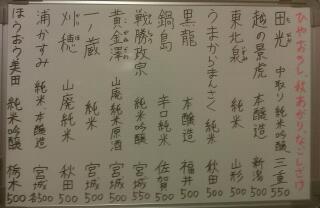 ひやおろし、秋あがり、なごしざけ
田光 中取り 純米吟醸 三重 550
越の景虎 本醸造 新潟 500
東北泉 純米 山形 500
うまからまんさく 純米 秋田 500
黒龍 本醸造 福井 500
鍋島 辛口純米 佐賀 500
戦勝政宗 純米吟醸 宮城 550
黄金澤 山廃純米原酒 宮城 500
一ノ蔵 純米 宮城 500
刈穂 山廃純米 秋田 500
浦かすみ 純米・本醸造 宮城 各500
ほうおう美田 純米吟醸 栃木 500